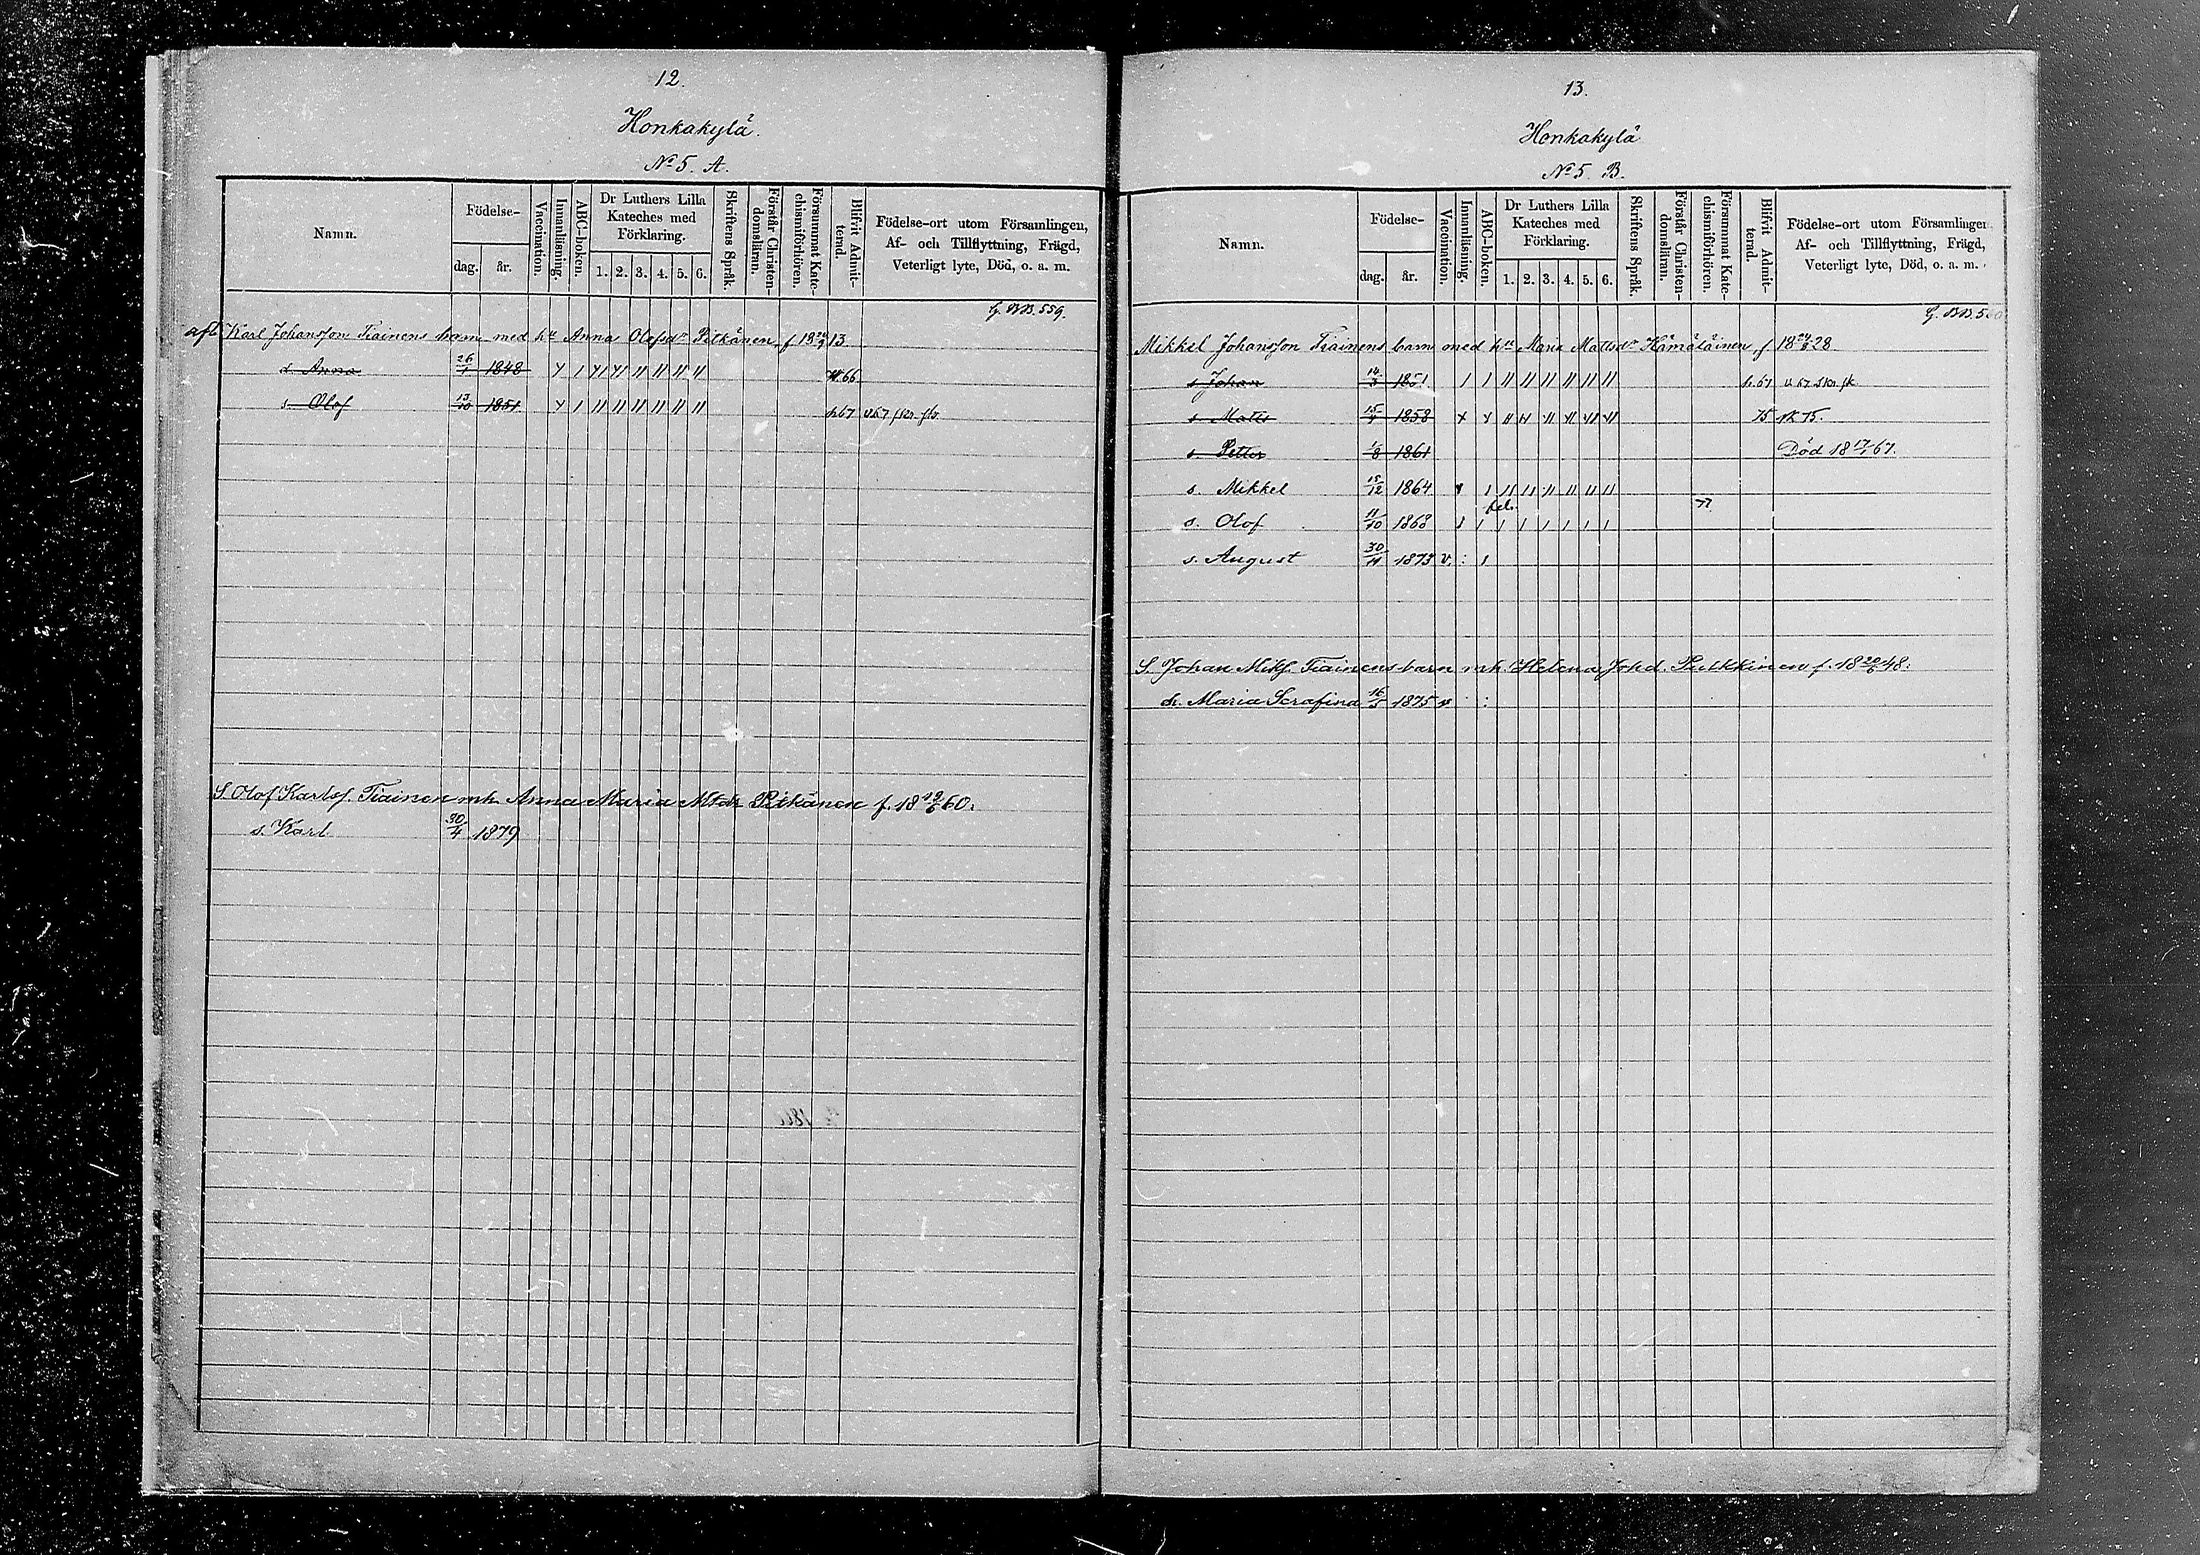 12.
Honkakylä.
No 5. A.
Namn.
Födelse-
dag.
år.
Vaccination.
Innanläsning.
ABC-boken.
Dr Luthers Lilla
Kateches med
Förklaring.
1. 2. 3. 4. 5. 6.
Skriftens Språk.
Förstår Christen-
domsläran.
Försummat Kate-
chismiförhören.
Blifvit Admit-
terad.
Födelse-ort utom Församlingen,
Af- och Tillflyttning, Frägd,
Veterligt lyte, Död, o. a. m.
BB. 559.
Karl Johansson Tiainens barn med hu Anna Olofsdr Pitkänen f 18 13
d. Anna 26/1 1848 66
s. Olof 13/10 1851 67
S. Olof Karlsf. Tiainen mh. Anna Maria Mtdr Pitkänen f. 18 19/6 60.
s. Karl 30/4 1879
13.
Honkakylä
No 5. B.
Namn.
Födelse-
dag.
år.
Vaccination.
Innanläsning.
ABC-boken.
Dr Luthers Lilla
Kateches med
Förklaring.
1. 2. 3. 4. 5. 6.
Skriftens Språk.
Förstår Christen-
domsläran.
Försummat Kate-
chismiförhören.
Blifvit Admit-
terad.
Födelse-ort utom Församlingen
Af- och Tillflyttning, Frägd,
Veterligt lyte, Död, o. a. m.
BB. 560
Mikkel Johansson Tiainens barn med hu Maria Mattsdr Hämäläinen f 18 28.
s. Johan 1851 67
s. Matts 1858 75 75.
s. Petter 1/8 1861 Död 18 17/1 67.
s. Mikkel 15/12 1864
77
s. Olof 11/10 1868
s. August 30/11 1873 v.
S. Johan Mikf. Tiainens barn mh. Helena Johd. Pulkkinen f. 18 48.
dr. Maria Serafina 16/5 1875 v